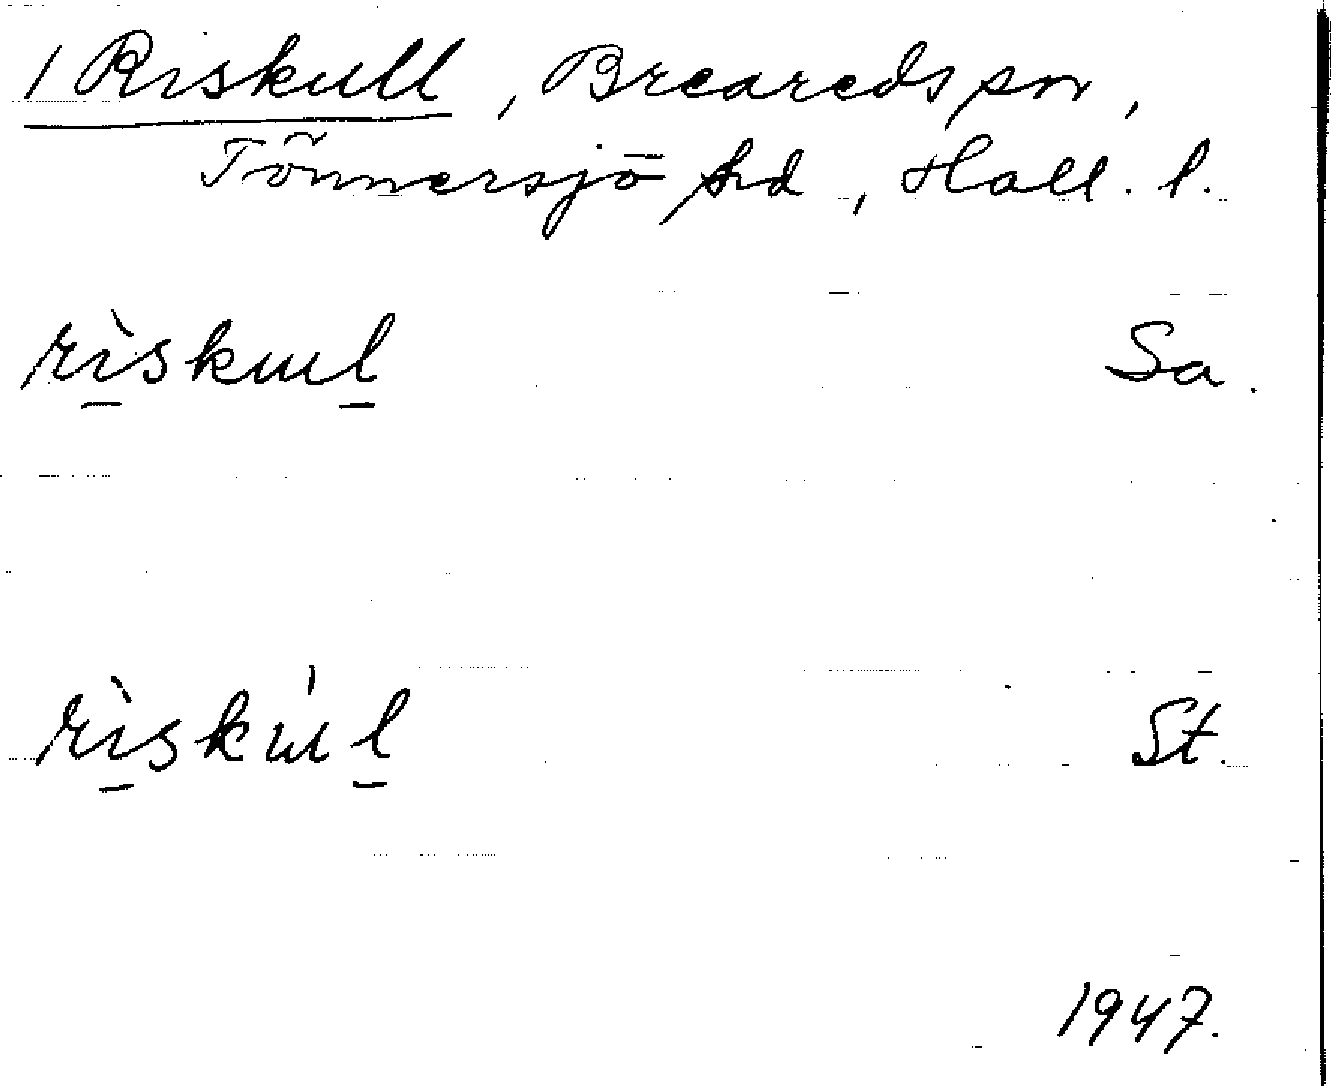 1 Riskull, Breareds sn,
Tönnersjö hd, Hall. l.
rìskɯl Sa.
rìskɯ́l St.
1947.